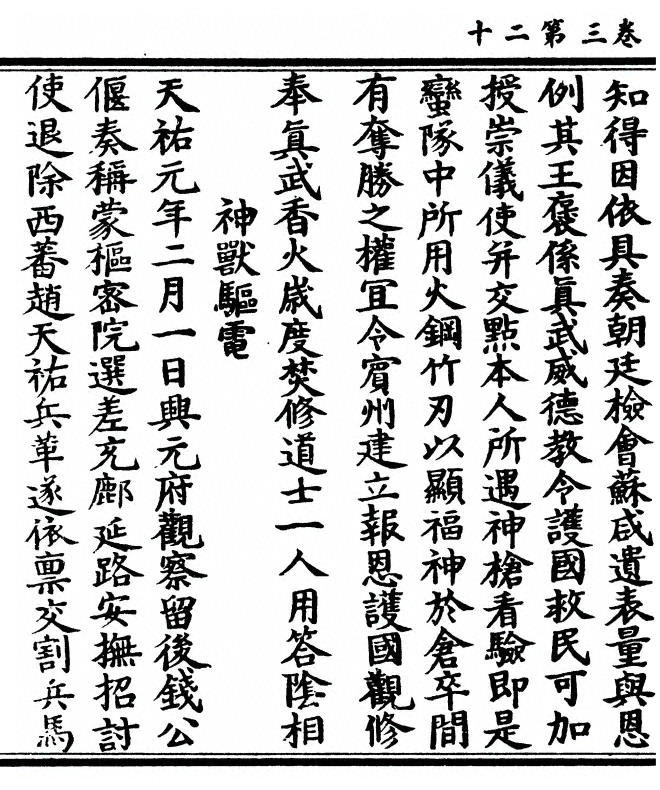 卷三第二十
知得因依具奏朝廷檢會蘇咸遺表量與恩
例其王褒係眞武威德教令護國救民可加
授崇儀使并交點本人所遇神槍看驗即是
蠻隊中所用火鋼竹刃以顯福神於倉卒間
有奪勝之權宜令賓州建立報恩護國觀修
奉眞武香火歲度焚修道士一人用答陰相
神獸驅電
天祐元年二月一日興元府觀察留後錢公
偃奏稱蒙樞密院選差充鄜延路安撫招討
使退除西蕃趙天祐兵革遂依稟交割兵馬